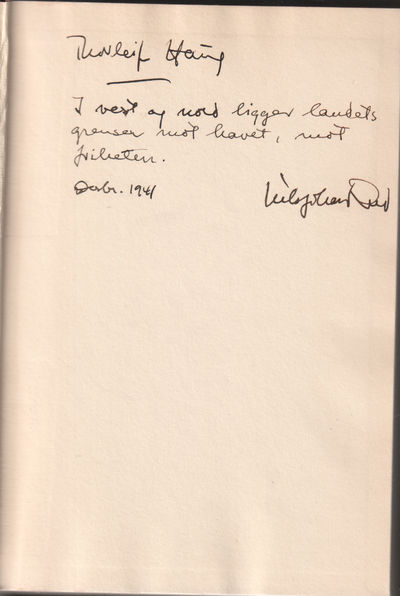 Thorleif Haug
I vest og nord ligger landets
grenser mot havet, mot
friheten.
Desbr. 1941
Nils Johan Rud